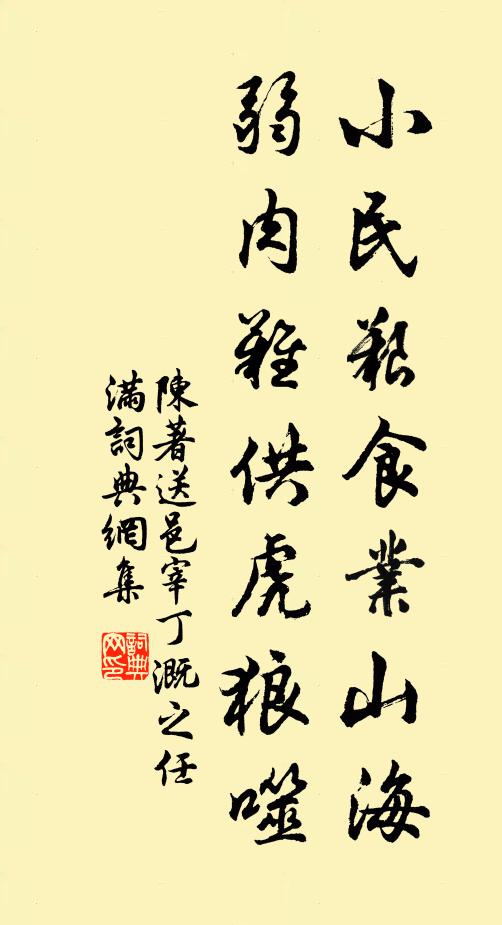 小民艱食業山海
弱肉難供虎狼噬
陳著送邑宰丁溉之任
滿詞典網集
詞典網印